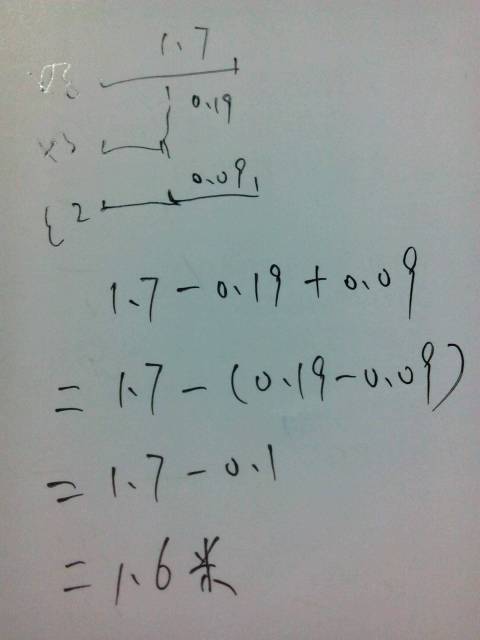 1.7
0.19
0.09
1.7-0.19+0.09
=1.7-(0.19-0.09)
=1.7-0.1
=1.6米